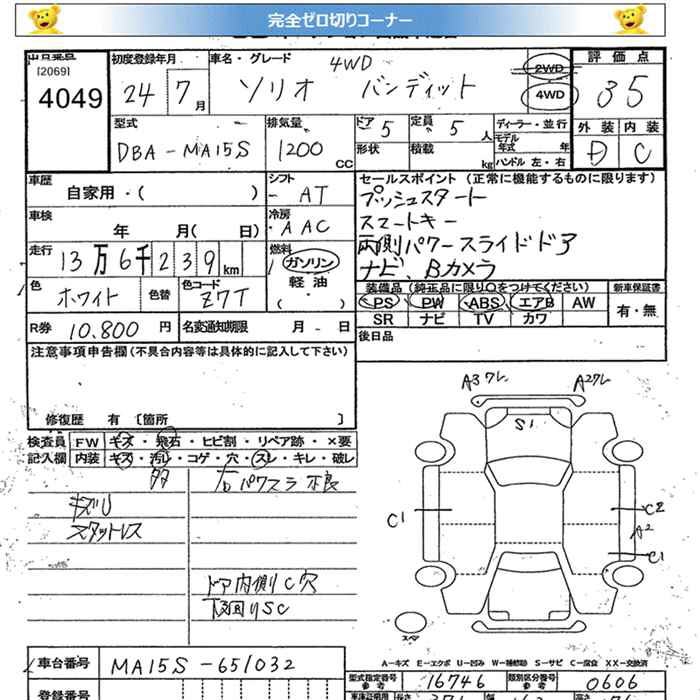 完全ゼロ切りコーナー
[2069]
4049
初度登録年月 24 7月
車名・グレード 4WD
ソリオ バンディット
2WD
4WD
評価点
35
外装 内装
D C
型式
DBA-MA15S
排気量
1200 CC
ドア 5
定員 5人
形状
積載 kg
ディーラー・並行
モデル年式 年
ハンドル 左・右
車歴
自家用・( )
シフト
AT
車検
年 月( 日)
冷房
AAC
走行
13万6千239km
燃料
ガソリン
軽油
( )
色
ホワイト
色替
色コード
Z7T
R券 10.800円
名変通知期限 月 日
セールスポイント(正常に機能するものに限ります)
プッシュスタート
スマートキー
両側パワースライドドア
ナビ、Bカメラ
装備品(純正品に限り○をつけてください)
PS PW ABS エアB AW
SR ナビ TV カワ
新車保証書
有・無
後日品
注意事項申告欄(不具合内容等は具体的に記入して下さい)
修復歴 有 [箇所 ]
検査員 FW キズ・飛石・ヒビ割・リペア跡・×要
記入欄 内装 キズ・汚レ・コゲ・穴・スレ・キレ・破レ
パワスラ不良
スタットレス
ドア内側C穴
下回りSC
A3 ワレ
A2ワレ
S1
C1
C2
A2
C1
スペア
A-キズ E-エクボ U-凹み W-補修跡 S-サビ C-腐食 XX-交換済
車台番号 MA15S-651032
型式指定番号 参考 16746
類別区分番号 参考 0606
登録番号